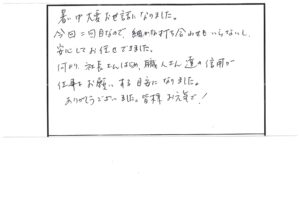 暑い中大変お世話になりました。
今回二回目なので、細かな打ち合わせもいらないし、
安心してお任せできました。
何より、社長さんはじめ、職人さん達の信用が
仕事をお願いする目安になりました。
ありがとうございました。皆様お元気で！